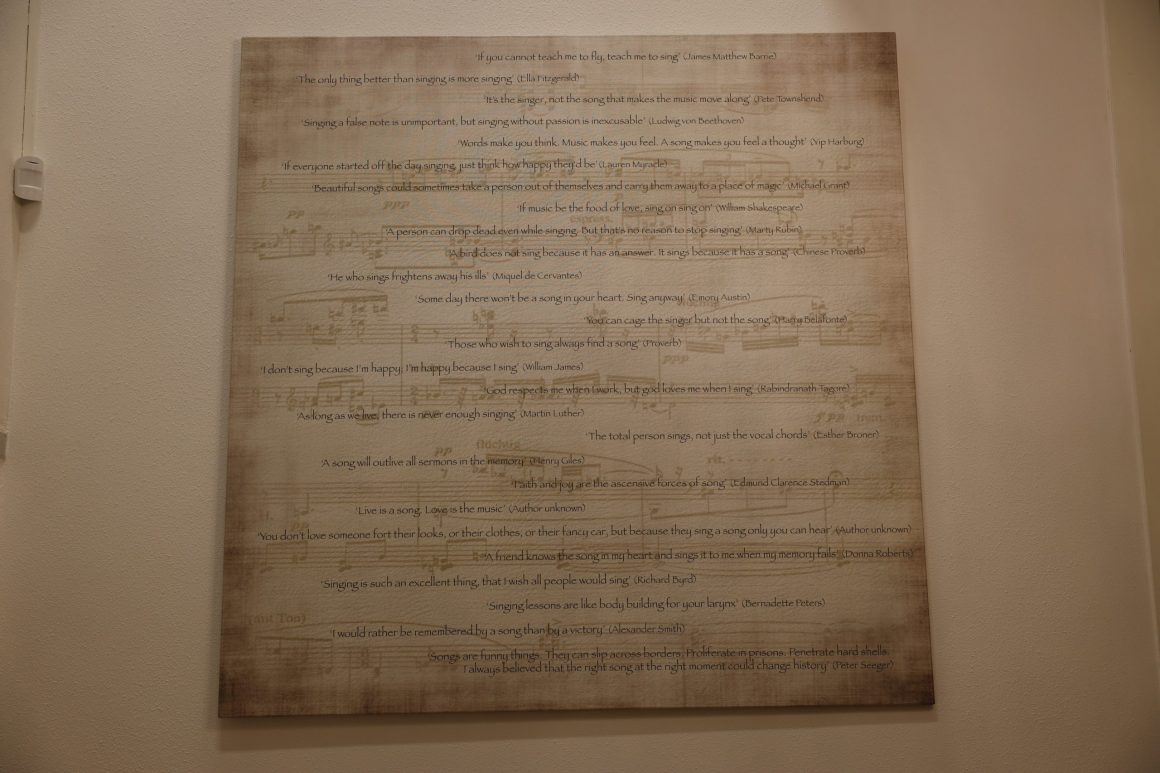 'If you cannot teach me to fly, teach me to sing' (James Matthew Barrie)
'The only thing better than singing is more singing' (Ella Fitzgerald)
'It's the singer, not the song that makes the music move along' (Pete Townshend)
'Singing a false note is unimportant, but singing without passion is inexcusable' (Ludwig von Beethoven)
'Words make you think. Music makes you feel. A song makes you feel a thought' (Yip Harburg)
'If everyone started off the day singing, just think how happy they'd be' (Lauren Myracle)
'Beautiful songs could sometimes take a person out of themselves and carry them away to a place of magic' (Michael Grant)
pp
ppp
'If music be the food of love, sing on sing on' (William Shakespeare)
espress.
'A person can drop dead even while singing. But that's no reason to stop singing' (Marty Rubin)
'A bird does not sing because it has an answer. It sings because it has a song' (Chinese Proverb)
'He who sings frightens away his ills' (Miquel de Cervantes)
'Some day there won't be a song in your heart. Sing anyway' (Emory Austin)
'You can cage the singer but not the song' (Harry Belafonte)
'Those who wish to sing always find a song' (Proverb)
ppp
'I don't sing because I'm happy; I'm happy because I sing' (William James)
'God respects me when I work, but god loves me when I sing' (Rabindranath Tagore)
'As long as we live, there is never enough singing' (Martin Luther)
'The total person sings, not just the vocal chords' (Esther Broner)
pp
rit.
'A song will outlive all sermons in the memory' (Henry Giles)
'Faith and joy are the ascensive forces of song' (Edmund Clarence Stedman)
'Live is a song. Love is the music' (Author unknown)
pp
'You don't love someone fort their looks, or their clothes, or their fancy car, but because they sing a song only you can hear' (Author unknown)
'A friend knows the song in my heart and sings it to me when my memory fails' (Donna Roberts)
'Singing is such an excellent thing, that I wish all people would sing' (Richard Byrd)
'Singing lessons are like body building for your larynx' (Bernadette Peters)
Ton)
'I would rather be remembered by a song than by a victory' (Alexander Smith)
'Songs are funny things. They can slip across borders. Proliferate in prisons. Penetrate hard shells.
I always believed that the right song at the right moment could change history' (Peter Seeger)